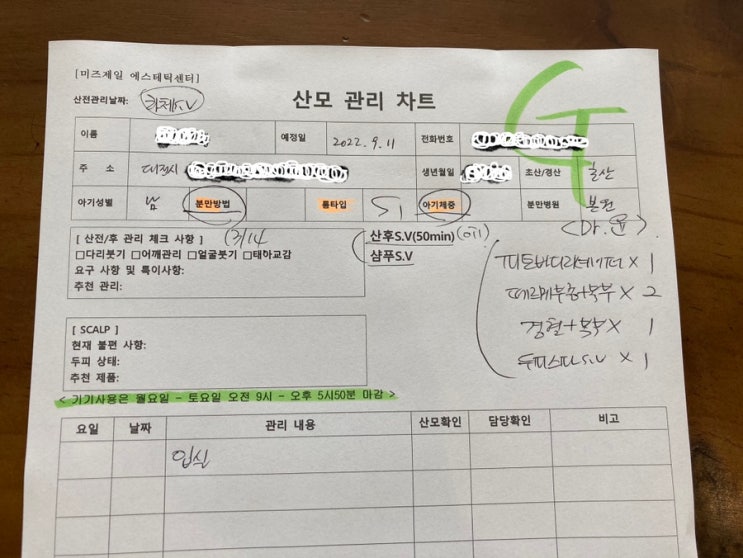 [미즈제일 에스테틱센터]
산전관리날짜: 하체S.V
산모 관리 차트
GT
이름 예정일 2022. 9. 11 전화번호
주 소 대전시 생년월일 초산/경산 초산
아기성별 남 분만방법 룸타입 S1 아기체중 분만병원 본원
<Dr.윤>
[ 산전/후 관리 체크 사항 ] (7/14
□다리붓기 □어깨관리 □얼굴붓기 □태하교감
요구 사항 및 특이사항:
추천 관리:
산후S.V(50min)
샴푸S.V
X 1
+복부 X 2
경혈+복부 X 1
두피스파S.V X 1
[ SCALP ]
현재 불편 사항:
두피 상태:
추천 제품:
< 기기사용은 월요일 - 토요일 오전 9시 - 오후 5시50분 마감 >
요일 날짜 관리 내용 산모확인 담당확인 비고
입실